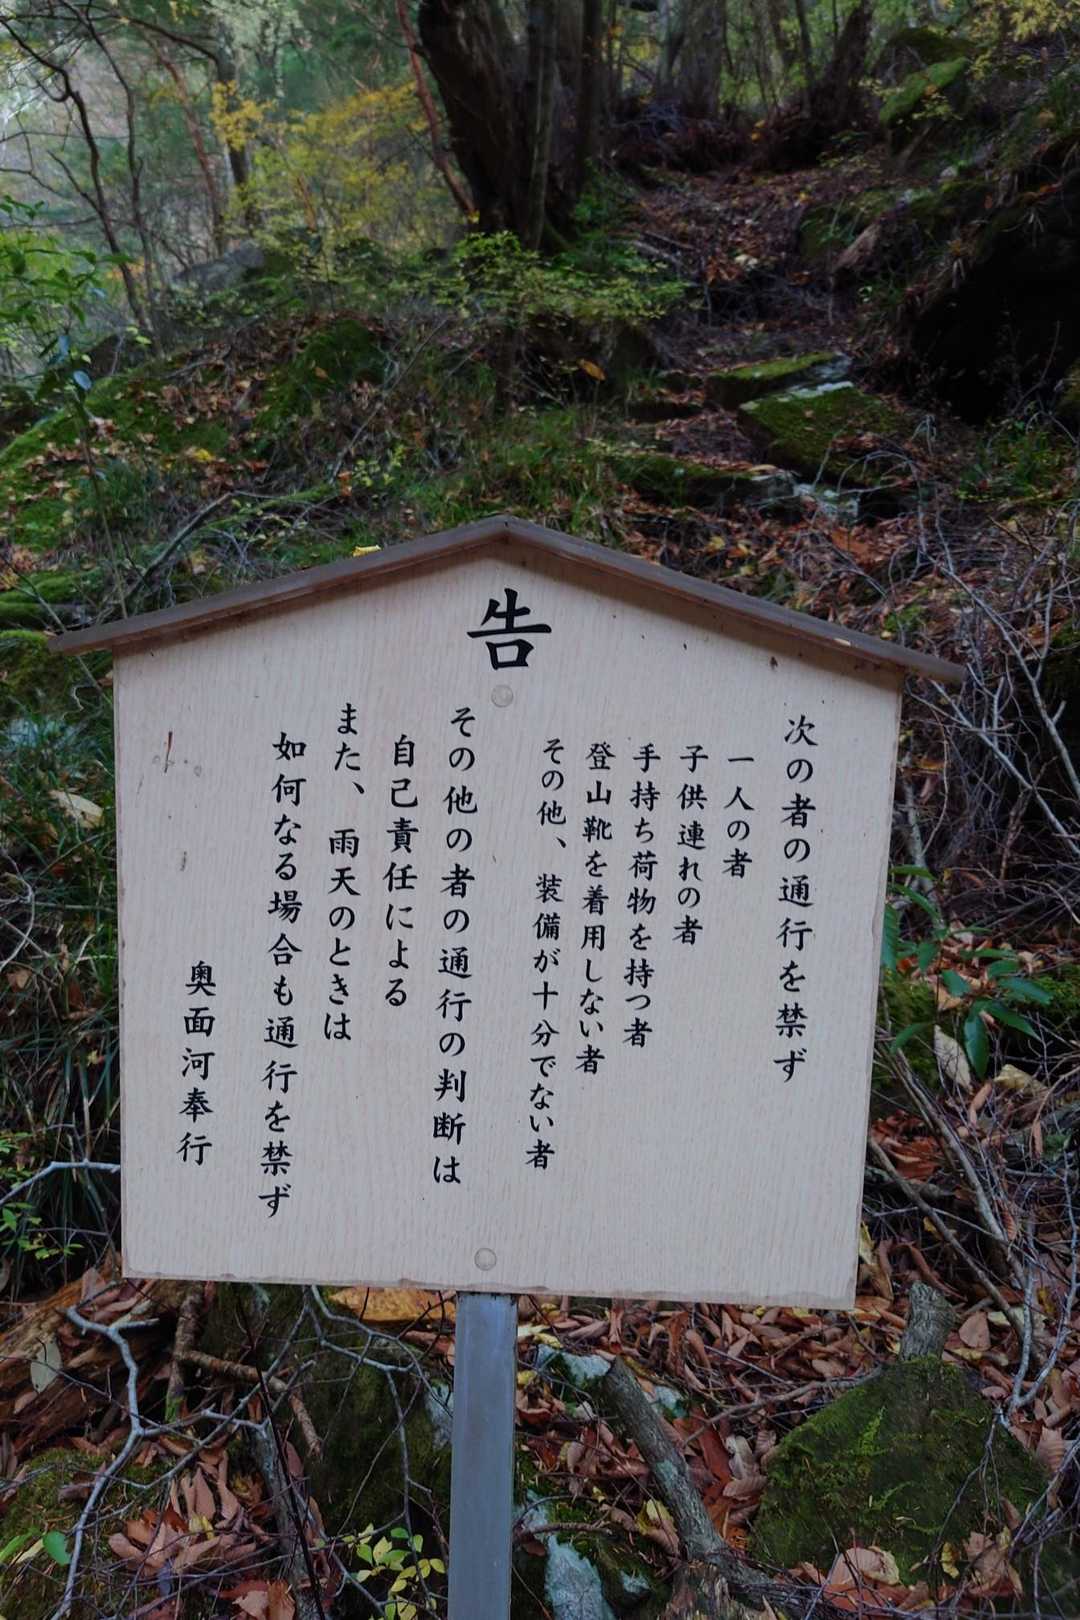 告
次の者の通行を禁ず
一人の者
子供連れの者
手持ち荷物を持つ者
登山靴を着用しない者
その他、装備が十分でない者
その他の者の通行の判断は
自己責任による
また、雨天のときは
如何なる場合も通行を禁ず
奥面河奉行